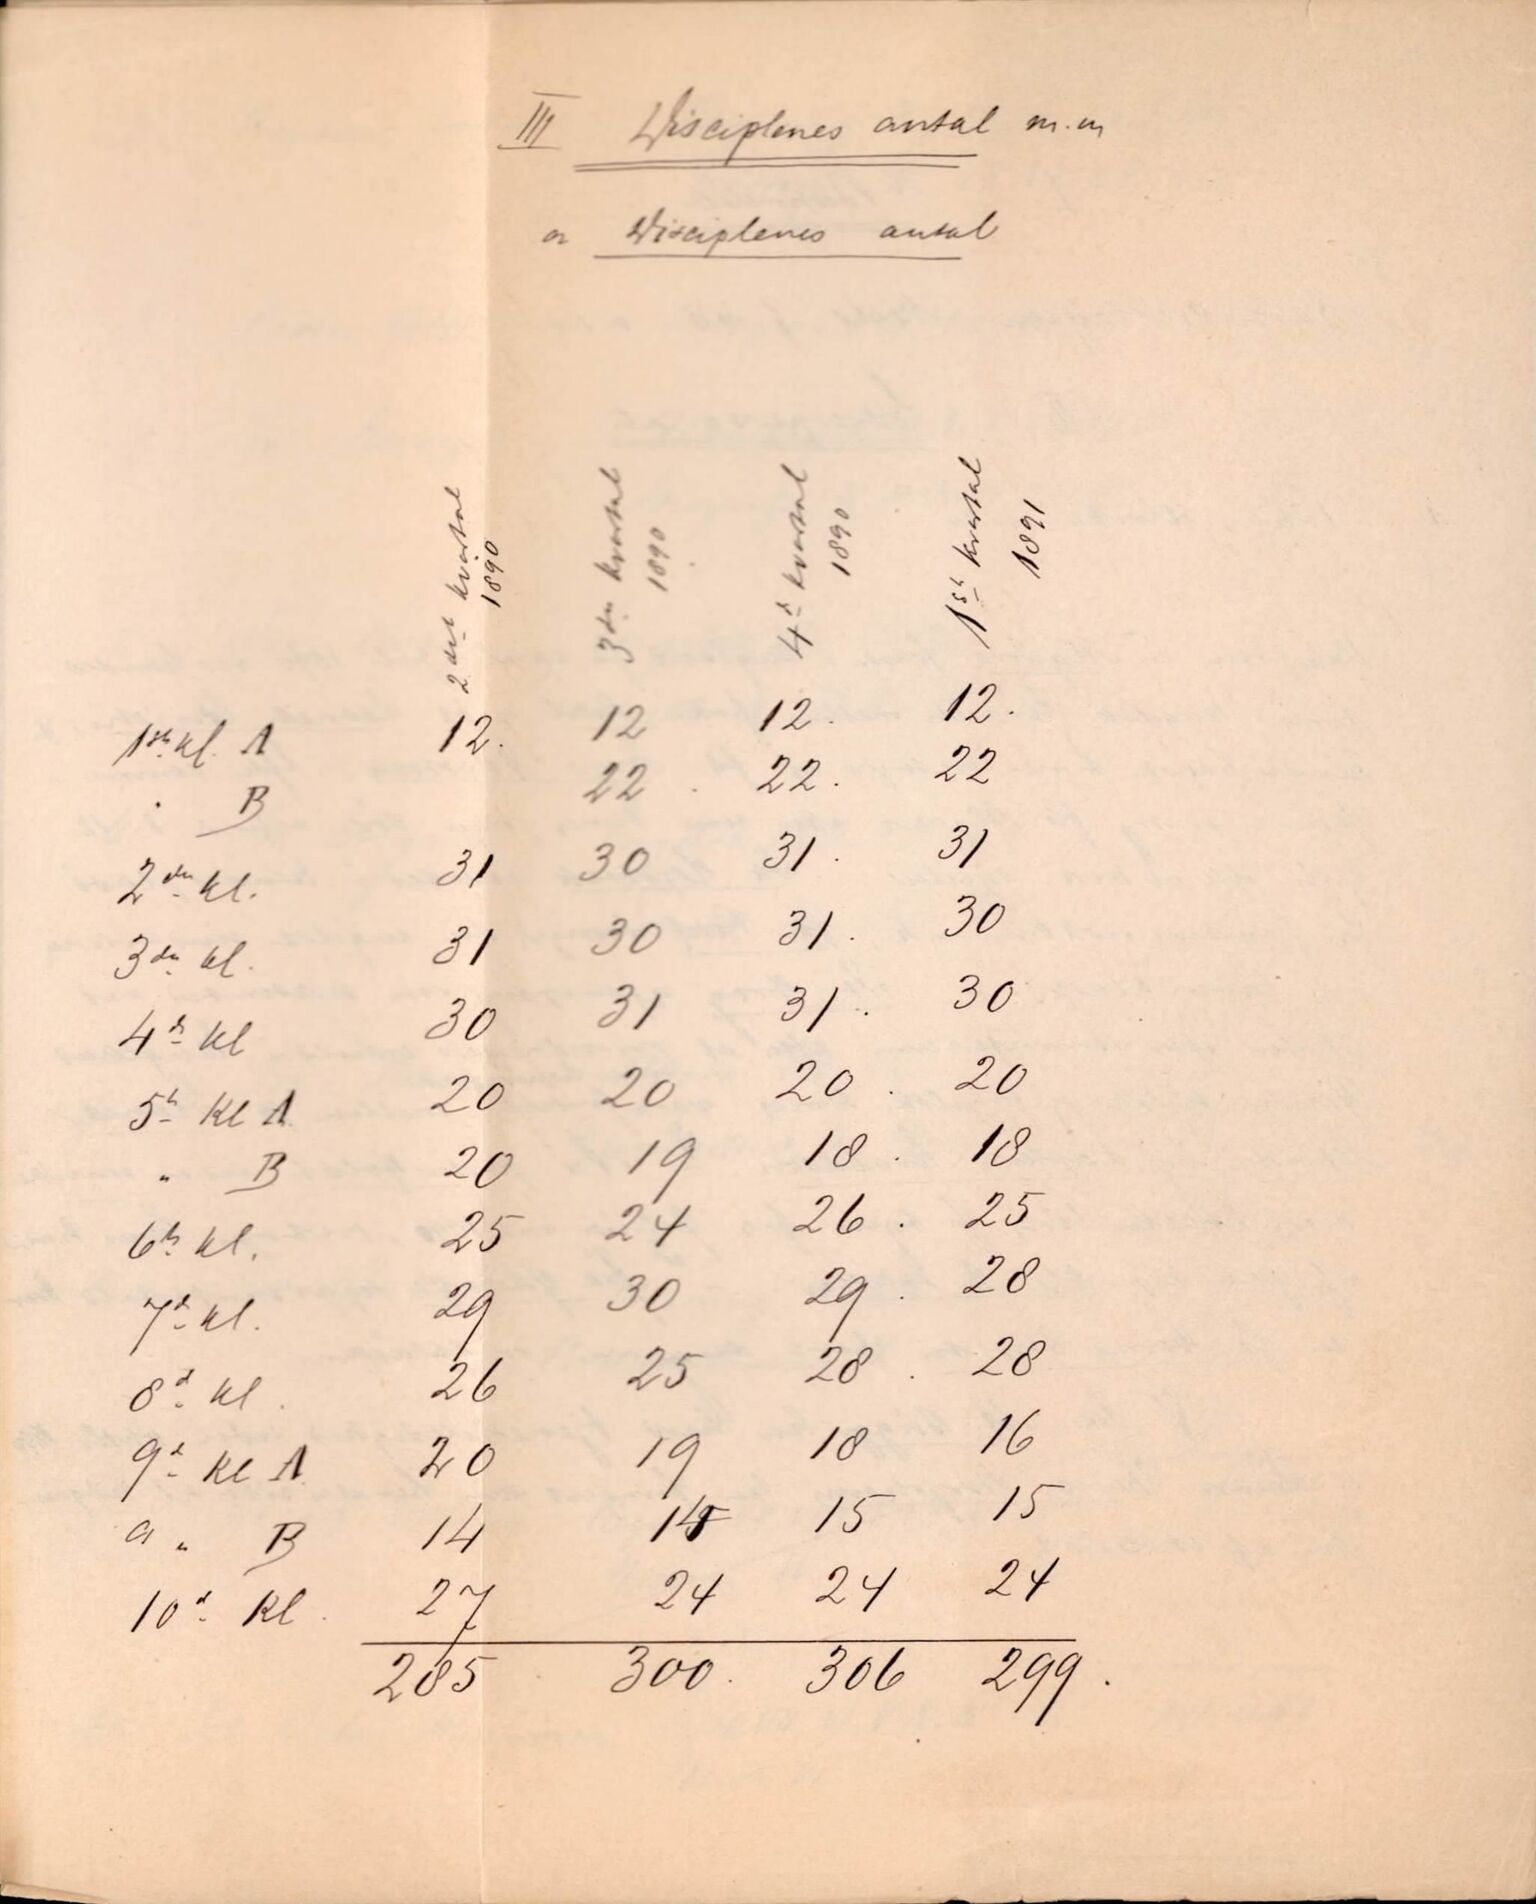 III Disciplenes antal m.m
a Disciplenes antal
2det kvartal 1890 3die kvartal 1890 4d kvartal 1890 1st kvartal 1891
1ste kl. A 12. 12 12. 12.
" B 22. 22. 22
2den kl. 31 30 31. 31
3die kl. 31 30 31. 30
4d kl 30 31 31. 30
5t kl A 20 20 20. 20
" B 20 19 18. 18
6te kl. 25 24 26. 25
7d kl. 29 30 29. 28
8d kl. 26 25 28. 28
9d kl A 20 19 18 16
9 " B 14 14 15 15
10d kl. 27 24 24 24
285 300. 306 299.